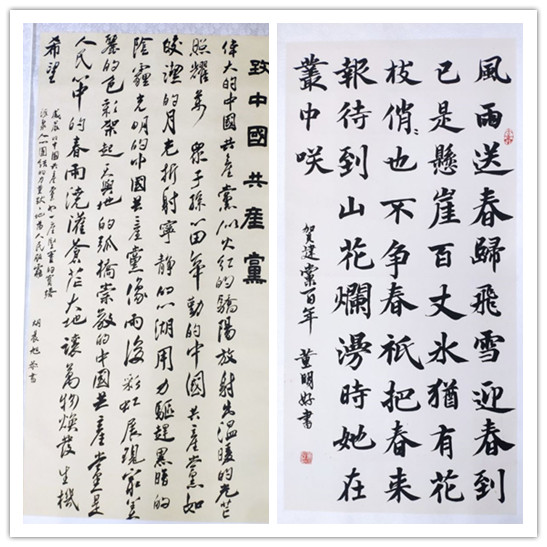 致中國共產黨
偉大的中國共產黨以火紅的驕陽放射出溫暖的光芒
照耀 眾子孫心田 的中國共產黨如
皎潔的月光折射寧靜的心湖用力驅趕黑暗的
陰霾光明的中國共產黨像雨後彩虹展現 美
麗的色彩架起天與地的弧橋崇敬的中國共產黨是
人民心中的春雨澆灌蒼茫大地讓萬物煥發生機
希望
的中國共產黨如一座堅實的寶塔
人心團結的力量默默地為人民服務
胡晨旭
風雨送春歸飛雪迎春到
已是懸崖百丈冰猶有花
枝俏〻也不争春祇把春来
報待到山花爛漫時她在
叢中咲
賀建黨百年
董明好書